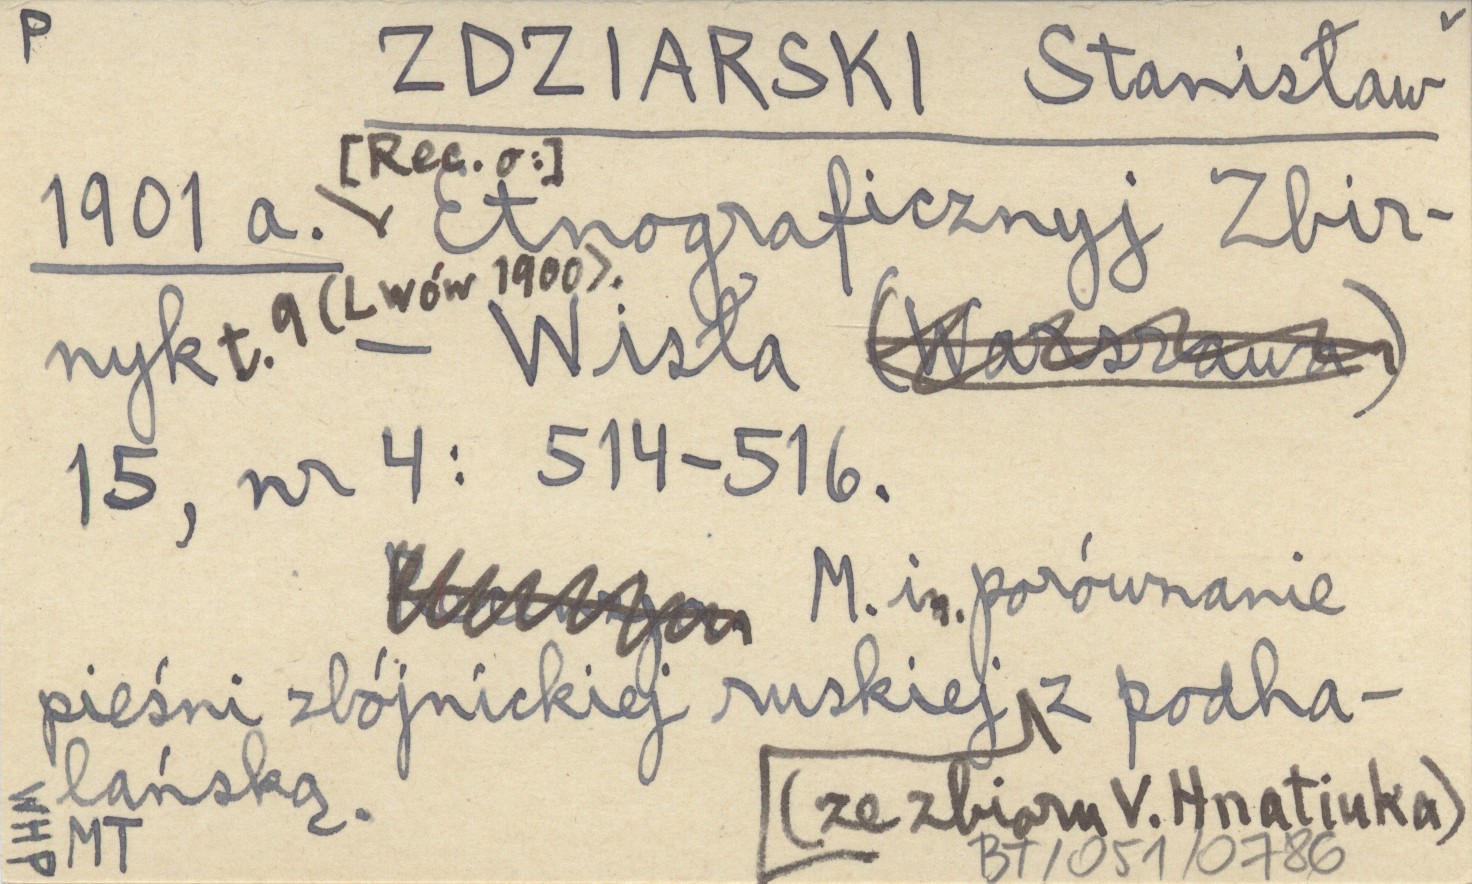 P
ZDZIARSKI Stanisław
[Rec. o:]
1901 a. Etnograficznyj Zbir-
nyk t. 9 (Lwów 1900). — Wisła (Warszawa)
15, nr 4: 514-516.
M. in. porównanie
pieśni zbójnickiej ruskiej z podha-
lańską.
(ze zbioru V. Hnatiuka)
WHP
MT
BT/051/0786